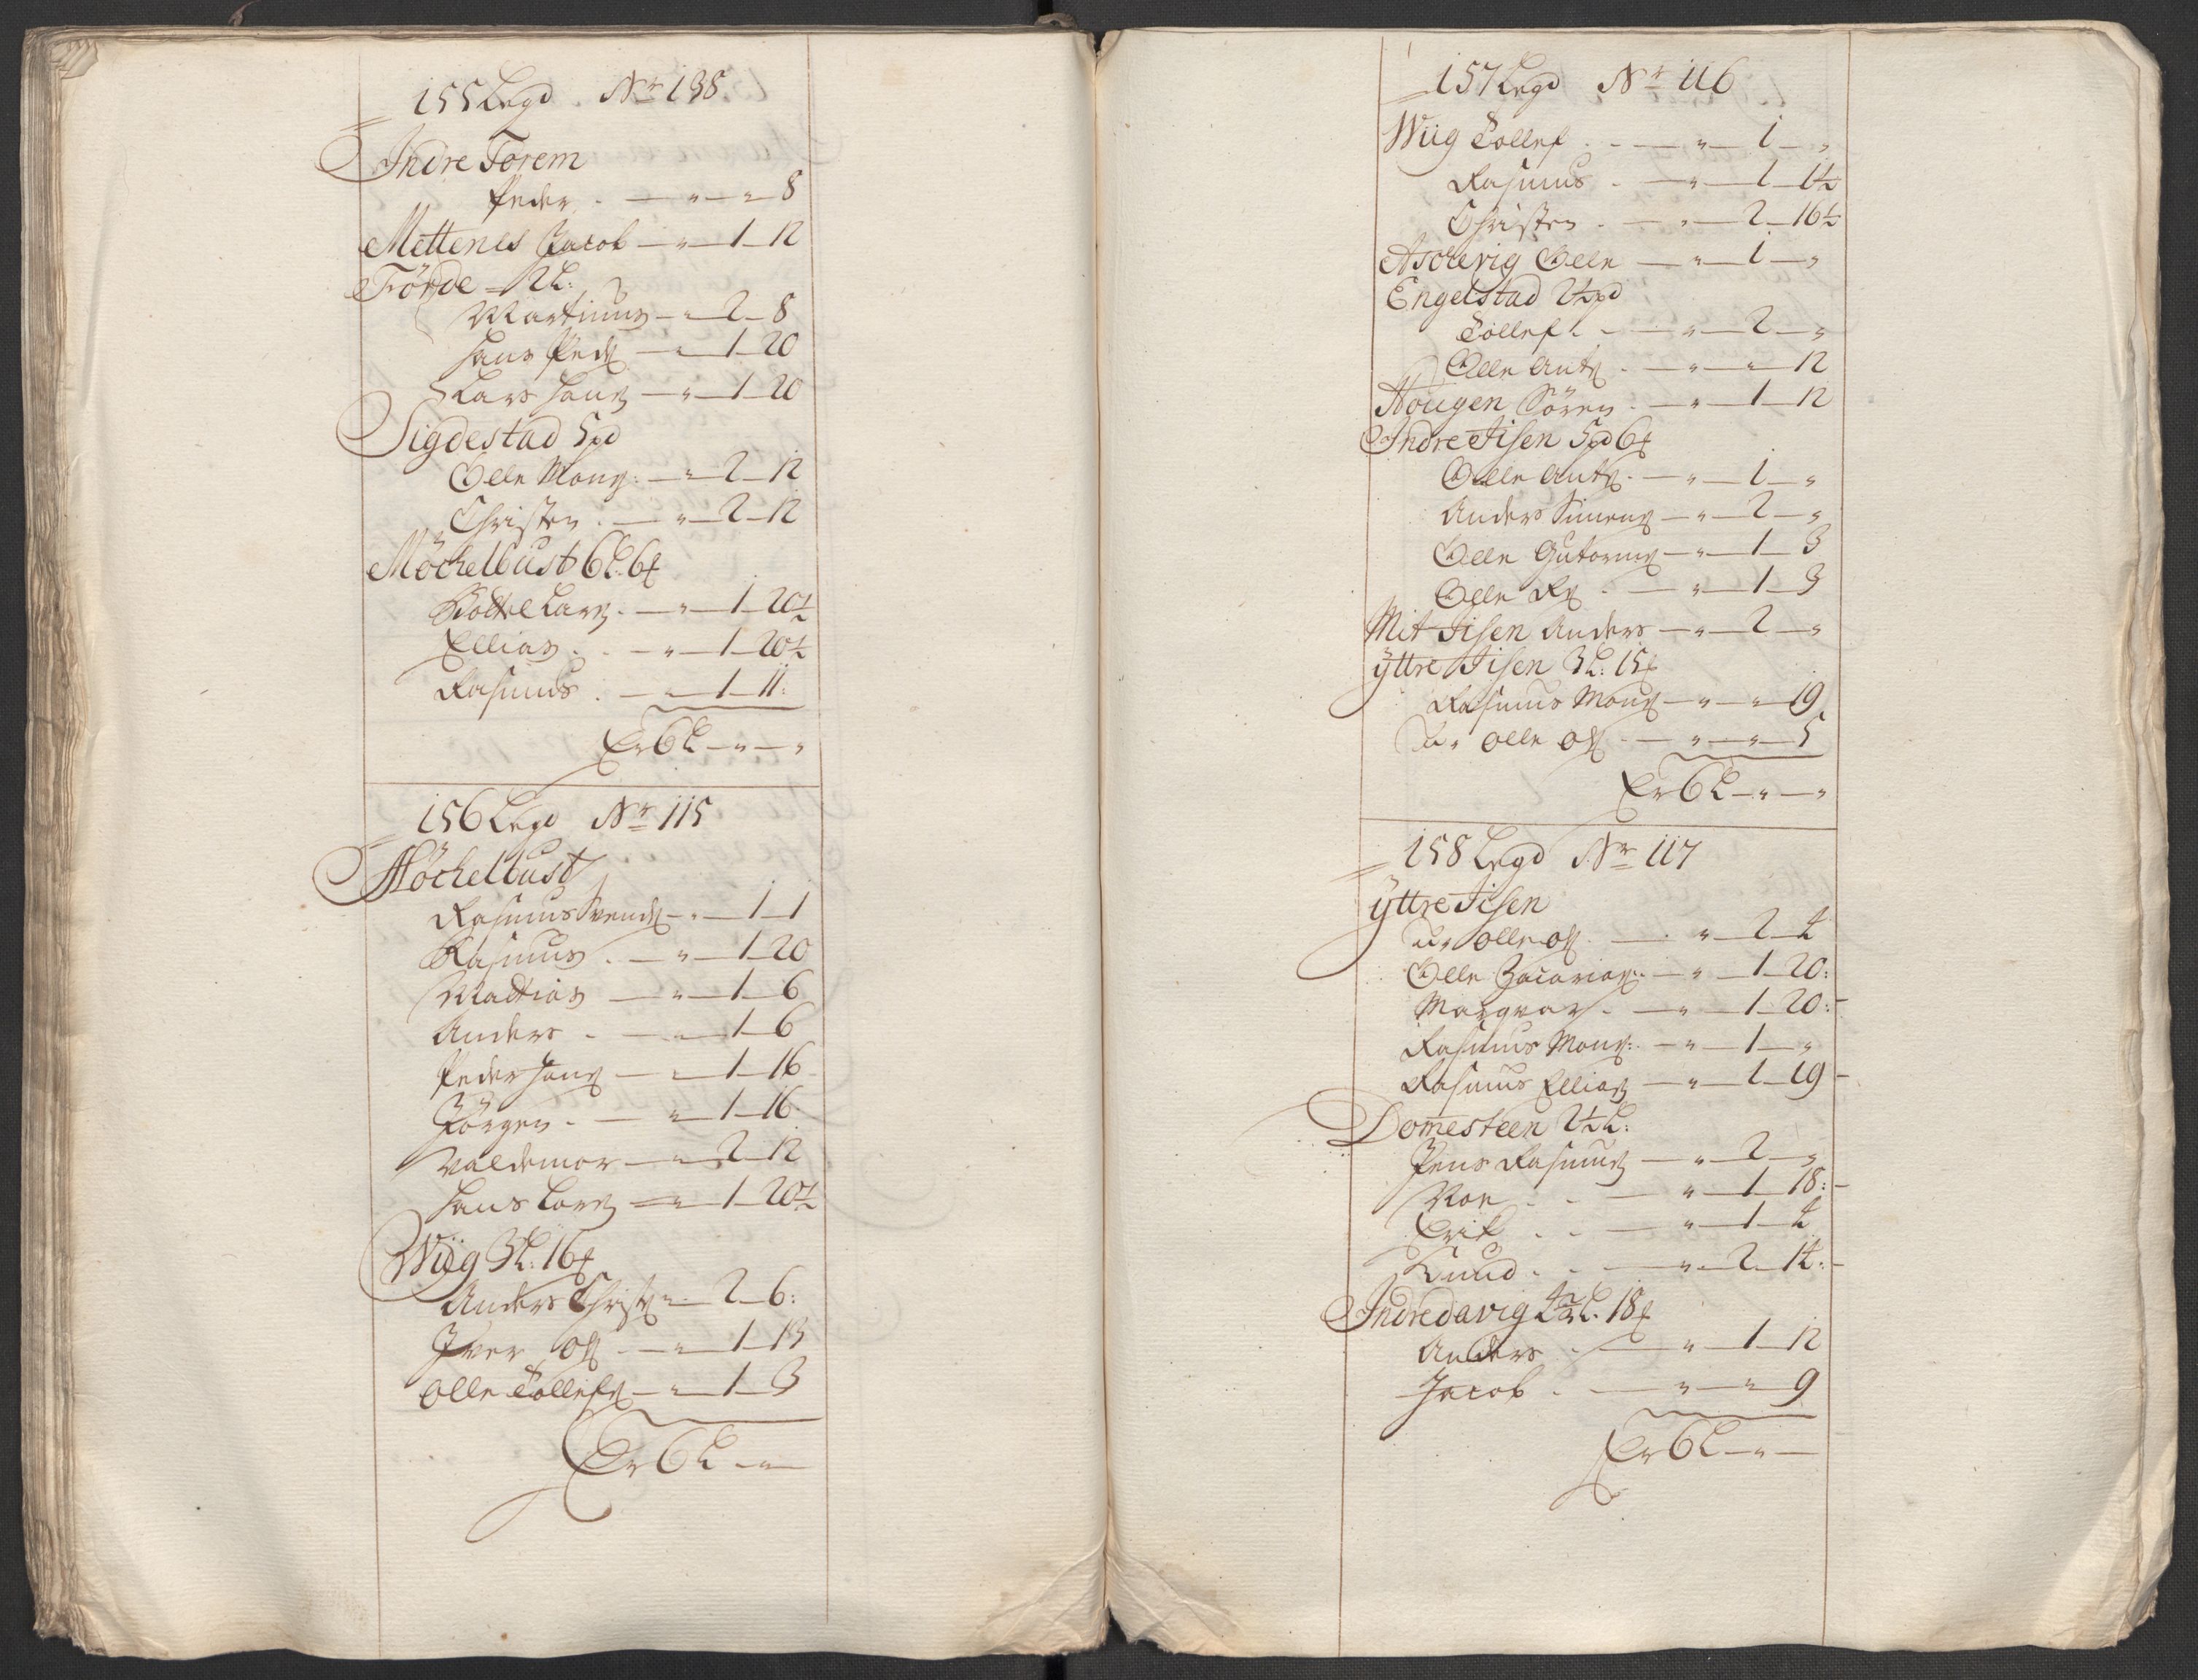 155 Legd Nr 138
Indre Torem
Peder . — " — " — 8
Mettenes Jacob — " — 1 — 12
Förde — 2 L:
Martinus — " — 2 — 8
Hans Peds — " — 1 — 20
Lars Hans — " — 1 — 20
Sigdestad 5 pd
Olle Mons: — " — 2 — 12
Christen . — " — 2 — 12
Möchelbust 6 L: 6
Bottel Lars . — " — 1 — 20½
Ellias . . — " — 1 — 20½
Rasmus . — " — 1 — 11:
Er 6 L — " — "
156 Legd Nr 115
Möchelbust
Rasmus Svends — " — 1 — 1
Rasmus . — " — 1 — 20
Mattias — " — 1 — 6
Anders . — " — 1 — 6
Peder Hans — " — 1 — 16
Jörgen . — " — 1 — 16
Valdemar — " — 2 — 12
Hans Lars — " — 1 — 20½
Wiig 3 L: 16
Anders Christ — " — 2 — 6:
Iver Ols . — " — 1 — 13
Olle Tollefs — " — 1 — 3
Er 6 L — " —
157 Legd Nr 116
Wiig Tollef . . — " — 1 — "
Rasmus . — " — 1 — 1½
Christen . — " — 2 — 16½
Aschevig Olle — " — 1 — "
Engelstad 2½ pd
Tollef . — " — 2 — "
Olle Ants . — " — " — 12
Hougen Sören . — " — 1 — 12
Indre Iisen 5 pd 6
Olle Ants . — " — 1 — "
Anders Simens — " — 2 — "
Olle Gutorms — " — 1 — 3
Olle Rs . — " — 1 — 3
Mit Iisen Anders — " — 2 — "
Yttre Iisen 3 L: 15
Rasmus Mons — " — " — 19
Olle Ols . — " — " — 5
Er 6 L — " — "
158 Legd Nr 117
Yttre Iisen
Olle Ols . — " — 2 — 4
Olle Zacarias . — " — 1 — 20:
Margvar . — " — 1 — 20:
Rasmus Mons: . — " — 1 — "
Rasmus Ellias — " — 1 — 19
Domesteen 2½ L:
Jens Rasmus — " — 2 — "
Roe . . — " — 1 — 18:
Erik . . — " — 1 — 4
Knud . . — " — 2 — 14:
Indredavig L. 18
Anders . — " — 1 — 12
Jacob . — " — " — 9
Er 6 L — " —